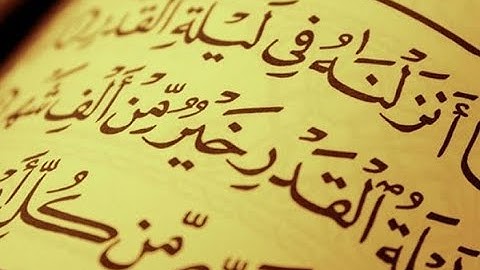 أَنزَلْنَٰهُ فِى لَيْلَةِ ٱلْقَدْرِ
ٱلْقَدْرِ خَيْرٌ مِّنْ أَلْفِ شَهْرٍ
مِّن كُلِّ